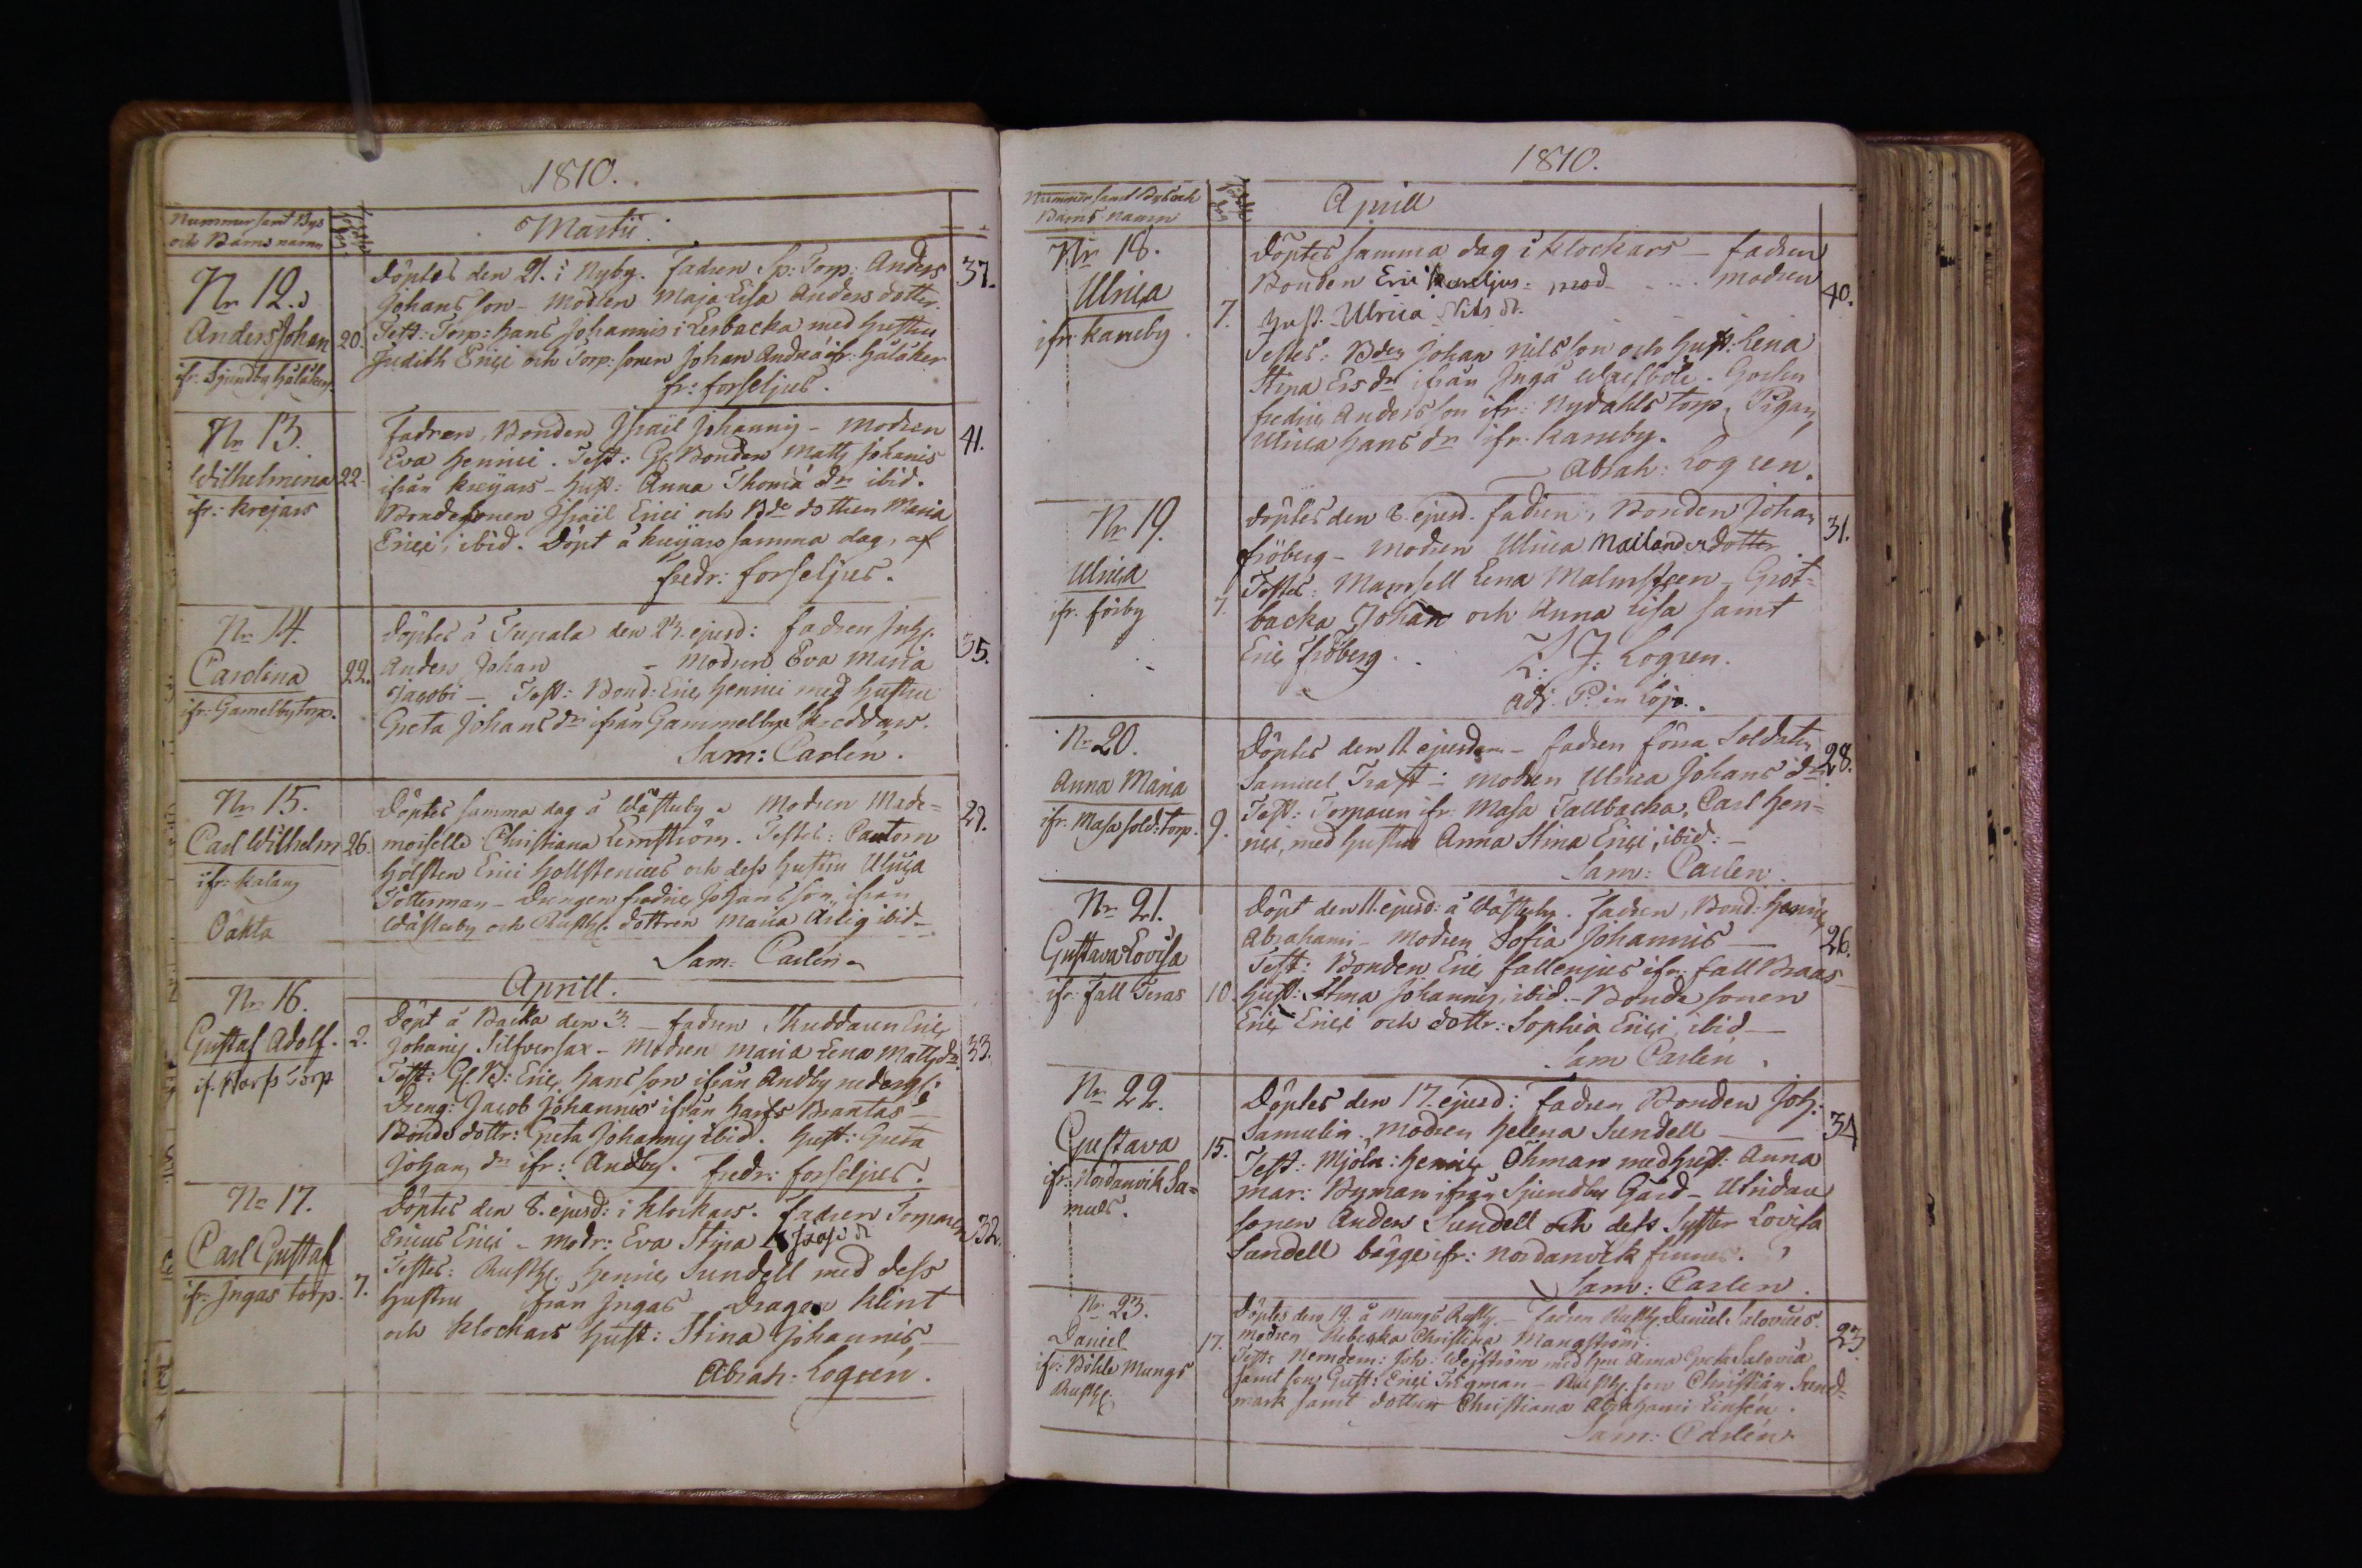 1810.
Nummer samt Bys
och Barns namn
Martii.
Nr 12.
Anders Johan
ifr. Sjundby Håläker
20.
Döptes den 21. i Nyby. Fadren Sp: Torp: Anders
Johansson - Modren Maja Lisa Andersdotter.
Test: Torp: Hans Johannis i Lerbacka med hustru
Judith Erici och Torp: sonen Johan Andrá ifr: Håläker
fr: Forseljus.
37.
Nr 13.
Wilhelmina
ifr: Krejars
22.
Fadren, Bonden Israël Johannis - Modren
Eva Henrici. Test: Gl: Bonden Matts Johannis
ifrån Krejars - Hust: Anna Thomæ dr ibid.
Bondesonen Israël Erici och Bde dottren Maria
Erici, ibid. Döpt å Krejars samma dag, af
Fredr: Forseljus.
41.
Nr 14.
Carolina
ifr: Gamelby torp.
22.
Döptes å Tupala den 23. ejusd: Fadren Inh:
Anders Johan - Modren Eva Maria
Jacobi - Test: Bond: Eric Henrici med hustru
Greta Johans dr ifrån Gammelby Skräddars.
Sam: Carlen.
35.
Nr 15.
Carl Wilhelm
ifr: Kalany
Oäkta
26.
Döptes samma dag å Wästerby. Modren Made-
moiselle Christiana Lemström. Testes: Pastorn
Holsten Erici Hollstenius och dess hustru Ulrica
Tötterman - Drengen Fredric Johansson, ifrån
Wästerby och Rusth: dottren Maria Arlig ibid.
Sam: Carlén
29.
Aprill.
Nr 16.
Gustaf Adolf.
if. Torp
2.
Döpt å Backa den 3. - Fadren Skräddaren Eric
Johannis Silfversax - Modren Maria Lena Matts dr.
Test: Gl. B: Eric Hansson ifrån Andby nedergl:
Dreng: Jacob Johannis ifrån Harfs Brantas
Bonde dottr: Greta Johannis ibid. Hust: Greta
Johans dr ifr: Andby. Fredr: Forseljus.
33.
Nr 17.
Carl Gustaf
ifr: Ingas torp.
7.
Döptes den 8. ejusd: i Klockars. Fadren Torparen
Ericus Erici - Modr: Eva Stina Isacs dr
Testes: Rusth: Henric Sundell med dess
Hustru ifrån Ingas - Dragon Klint
och Klockars hust: Stina Johannis
Abrah: Logren.
32.
1810.
Nummer samt Bys och
Barns namn
Aprill
Nr 18.
Ulrica
ifr: Kaneby
7.
Döptes samma dag i Klockars - Fadren
Bonden Eric Kareljus: med - ... modren
Hust. Ulrica Nils dr.
Testes: Bden Johan Nilsson och Hust: Lena
Stina Ers dr ifrån Ingå Wäsböle. Gossen
Fredric Andersson ifr: Nydahls torp. Pigan
Ulrica Hans dr ifr. Kaneby.
Abrah: Logren.
40.
Nr 19.
Ulrica
ifr. Förby
7.
Döptes den 8. ejusd. Fadren, Bonden Johan
Fröberg - Modren Ulrica Mailanderdotter
Testes: Mamsell Lena Malmsteen - Gröt-
backa Johan och Anna Lisa samt
Eric Fröberg. Z. J: Logren.
Adj. P: in Lojo.
31.
Nr 20.
Anna Maria
ifr. Masa sold: torp.
9.
Döptes den 11 ejusdem - Fadren förra Soldaten
Samuel Trast - Modren Ulrica Johans dr
Test: Torparen ifr: Masa Tallbacka, Carl Hen-
rici, med hustru Anna Stina Erici, ibid: -
Sam: Carlen.
28.
Nr 21.
Gustava Lovisa
ifr: Fall Teras
10.
Döpt den 11. ejusd: å Wästerby. Fadren, Bond: Henric
Abrahami - Modren Sofia Johannis
Test: Bonden Eric Fallenjus ifr: Fall Braas
Hust: Stina Johannis, ibid. - Bonde sonen
Eric Erici och dottr: Sophia Erici, ibid -
Sam Carlén.
26.
Nr 22.
Gustava
ifr: Nordanvik Sa-
muls.
15.
Döptes den 17. ejusd: Fadren Bonden Joh:
Samulin. Modren Helena Sundell
Test: Mjöln: Henric Öhman med hust: Anna
Mar: Byman ifrån Sjundby Gård - Utridare
sonen Anders Sundell och dess Syster Lovisa
Sundell bägge ifr: Nordanvik finnes.
Sam: Carlen.
34
Nr 23.
Daniel
ifr: Böhle Mangs
Rusth:
17.
Döptes den 19. å Mangs Rusth. - Fadren Rusth: Daniel Salovius.
Modren Rebecka Christina Mangström.
Test: Nemdem: Joh: Wejström med hru Anna Greta Salovia
samt son Gust: Erici Trägman - Rusth: son Christian Sund-
mark samt dottren Christiana Abrahami Linsén.
Sam: Carlén.
23.